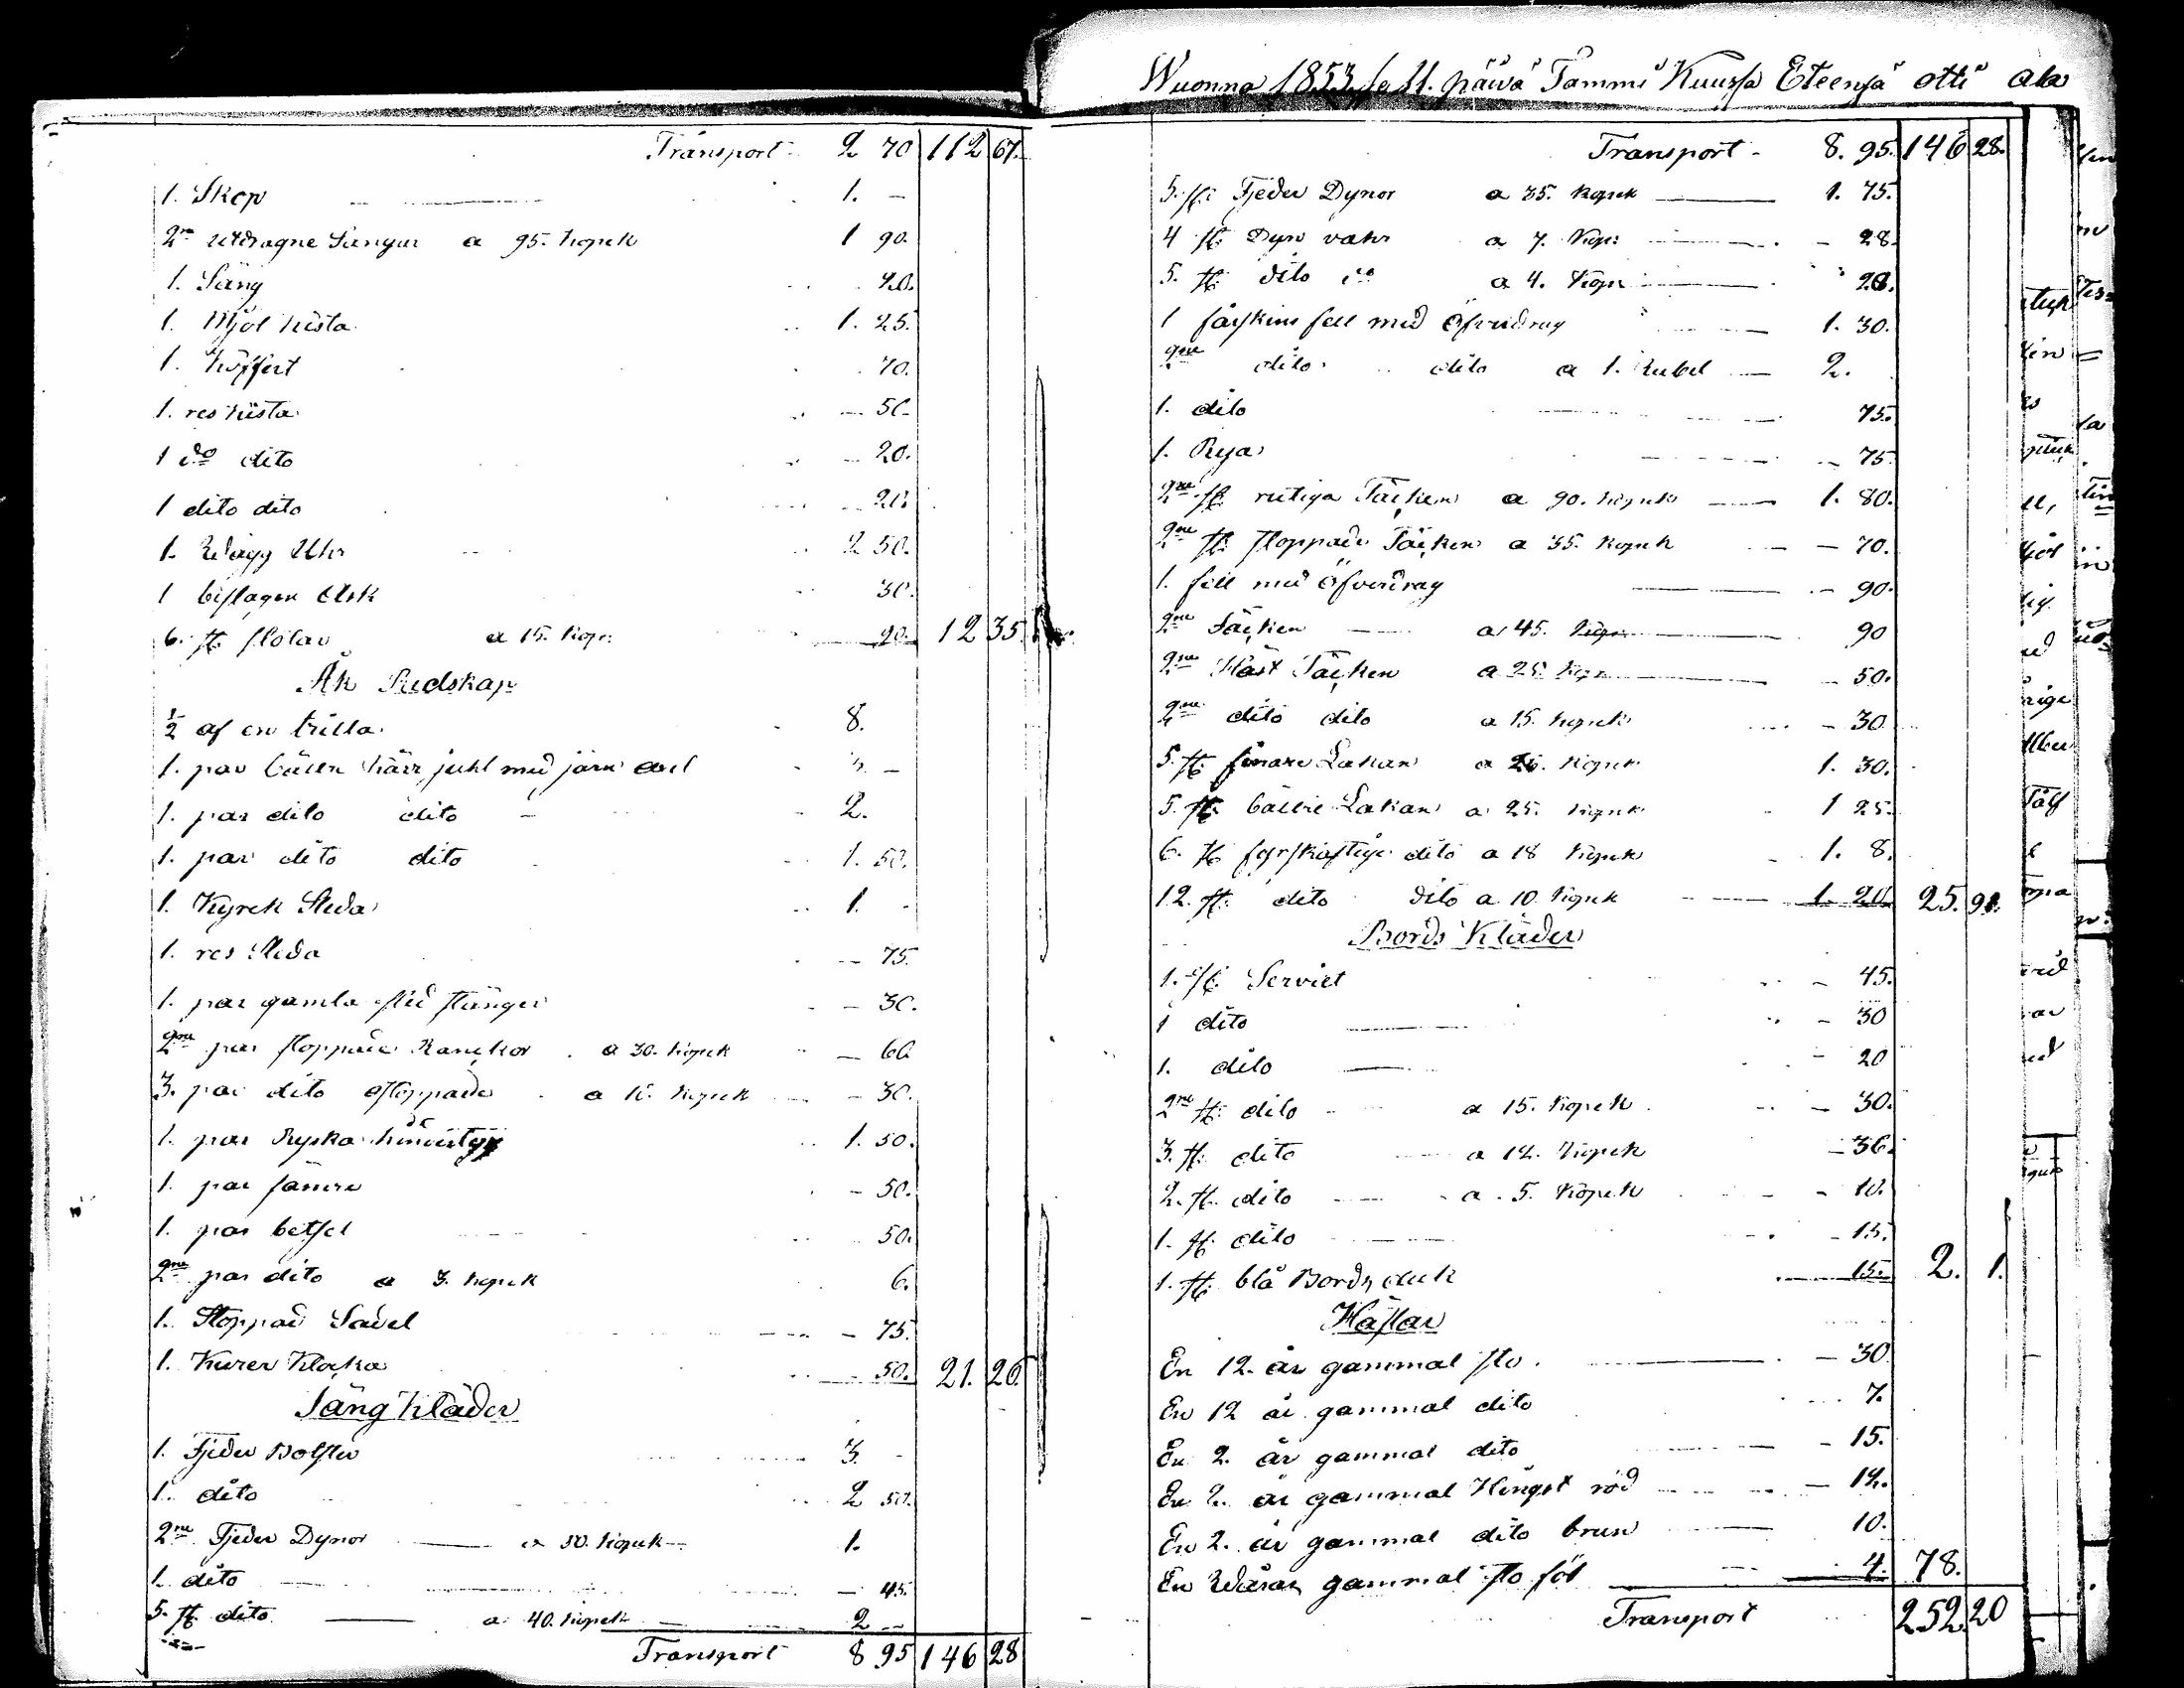 Transport 2 70 112 67.
1. Skåp 1. –
2ne utdragne Sängar a 95. kopek 1 90.
1. Säng 40.
1. Mjöl kista 1. 25.
1. Koffert 70.
1. res kista 50
1 do dito 20.
1 dito dito 20
1. Wägg Uhr 2 50.
1 beslagen Ask 30.
6. st. stolar a 15. Kop: 90. 12 35.
Åk Redskap
1/2 af en trilla 8.
1. par bättre kärr juhl med järn axel –
1. par dito dito 2.
1. par dito dito 1. 50.
1. Kyrck Sleda 1. -
1. res Sleda – 75.
1. par gamla släd stänger – 30.
2ne par stoppade Ranckor a 30. kopek – 60
3. par dito ostoppade a 10. kopek – 30.
1. par Ryska 1. 50.
1. par sämre – 50.
1. par betsel 50.
2ne par dito a 3. kopek 6.
1. Stoppad Sadel – 75.
1. Kurer Klocka 50. 21. 26.
Säng kläder
1. Fjeder Bolster 3. -
1. dito 2 50.
2ne Fjeder Dynor a 50. kopek 1.
1. dito – 45.
5. st. dito a 40. kopek 2 –
Transport 8 95 146 28
Wuonna 1853. ja 11. päivä Tammi Kuussa Eteensä otti ala
Transport - 8. 95. 146 28.
5. st. Fjeder Dynor a 35. kopek 1. 75.
4 st. Dyn vahr a 7. Kop: – 28.
5. st. dito do a 4. Kop: 20.
1 fårskins fell med Öfverdrag 1. 30.
2ne dito dito a 1. Rubel 2.
1. dito 75.
1. Rya 75
2ne st. rutiga Täcken a 90. kopek 1. 80.
2ne st. stoppade Täcken a 35. kopek – 70.
1. fell med öfverdrag – 90.
2ne Täcken a 45. kop: 90
2ne Häst Täcken a 25. Kop: – 50.
2ne dito dito a 15. kopek – 30
5. st. finare Lakan a 26. kopek 1. 30.
5. st. bättre Lakan a 25. kopek 1 25.
6. st. fyrskaftige dito a 18 kopek 1. 8.
12. st. dito dito a 10. kopek 1. 20. 25. 91.
Bords Kläder
1. st. Serviet – 45.
1 dito – 30
1. dito – 20
2ne st. dito a 15. kopek – 30.
3. st. dito a 12. kopek – 36.
2. st. dito a 5. kopek – 10.
1. st. dito – 15.
1. st. blå Bords duk 15. 2. 1.
Hästar
En 12. år gammal sto. – 30
En 12 år gammal dito 7.
En 2. år gammal dito – 15.
En 2. år gammal Hingst röd – 12.
En 2. år gammal dito brun 10.
En gammal sto föl 4. 78.
Transport 252. 20